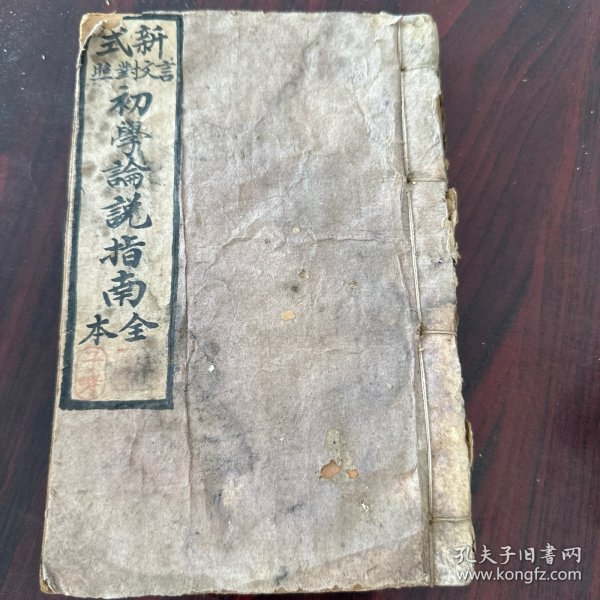 新式
言文對照
初學論說指南
全本
孔夫子旧书网
www.kongfz.com